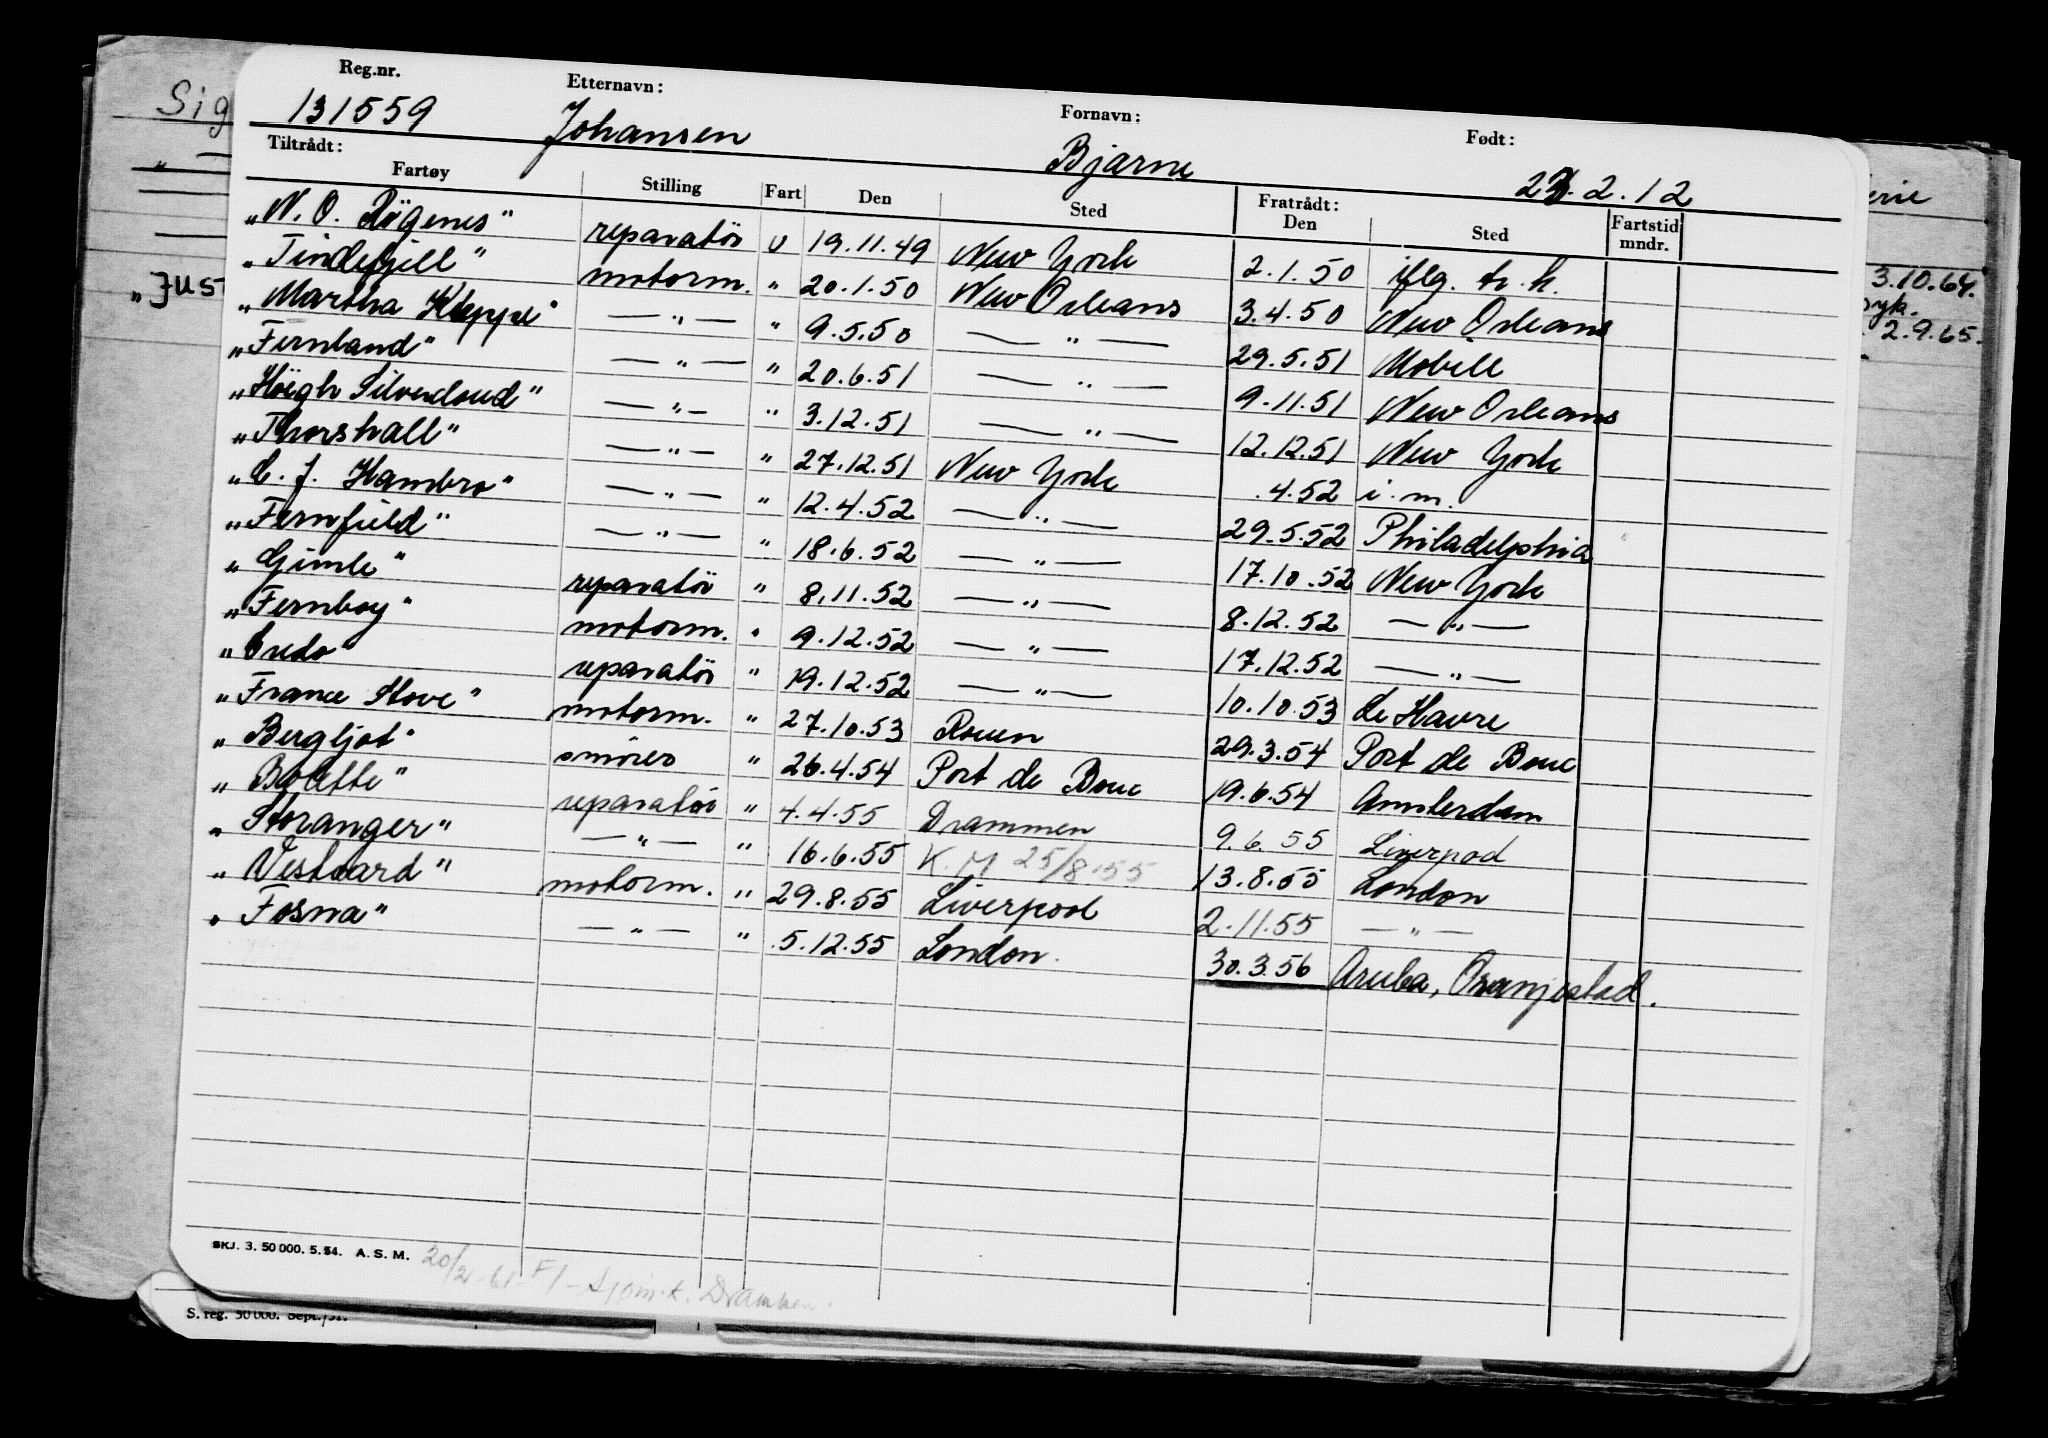 Reg.nr. Etternavn: Fornavn: Født:
131559 Johansen Bjarne 2.12
Tiltrådt: Fratrådt:
Fartøy Stilling Fart Den Sted Den Sted Fartstid mndr.
„N. O. Røgenes" reparatör U 19.11.49 New York 2.1.50 iflg. tr. h.
„Tindefjell" motorm. " 20.1.50 New Orleans 3.4.50 New Orleans
„Martha Kleppe" —„— " 9.5.50 —„— 29.5.51 Mobile
„Fernland" —„— " 20.6.51 —„— 9.11.51 New Orleans
„Höegh Silvercloud" —„— " 3.12.51 —„— 12.12.51 New York
„Thorshall" —„— " 27.12.51 New York .4.52 i.m.
„C. J. Hambro" —„— " 12.4.52 —„— 29.5.52 Philadelphia
„Fernfield" —„— " 18.6.52 —„— 17.10.52 New York
„Gimle" reparatör " 8.11.52 —„— 8.12.52 —„—
„Fernboy" motorm. " 9.12.52 —„— 17.12.52 —„—
„Credo" reparatör " 19.12.52 —„— 10.10.53 le Havre
„France Stove" motorm. " 27.10.53 Rouen 29.3.54 Port de Bouc
„Bergljot" smörer " 26.4.54 Port de Bouc 19.6.54 Amsterdam
„Bolette" reparatör " 4.4.55 Drammen 9.6.55 Liverpool
„Storanger" —„— " 16.6.55 K. M 25/8.55 13.8.55 London
„Vestvard" motorm. " 29.8.55 Liverpool 2.11.55 —„—
„Fosna" —„— " 5.12.55 London. 30.3.56 Aruba, Oranjestad.
SKJ. 3. 50 000. 5. 54. A. S. M. 20/2-61 Drammen.
S. reg. 50 000. Sept./51.
Sig
„ —
„Just
erie
3.10.64.
2.9.65.